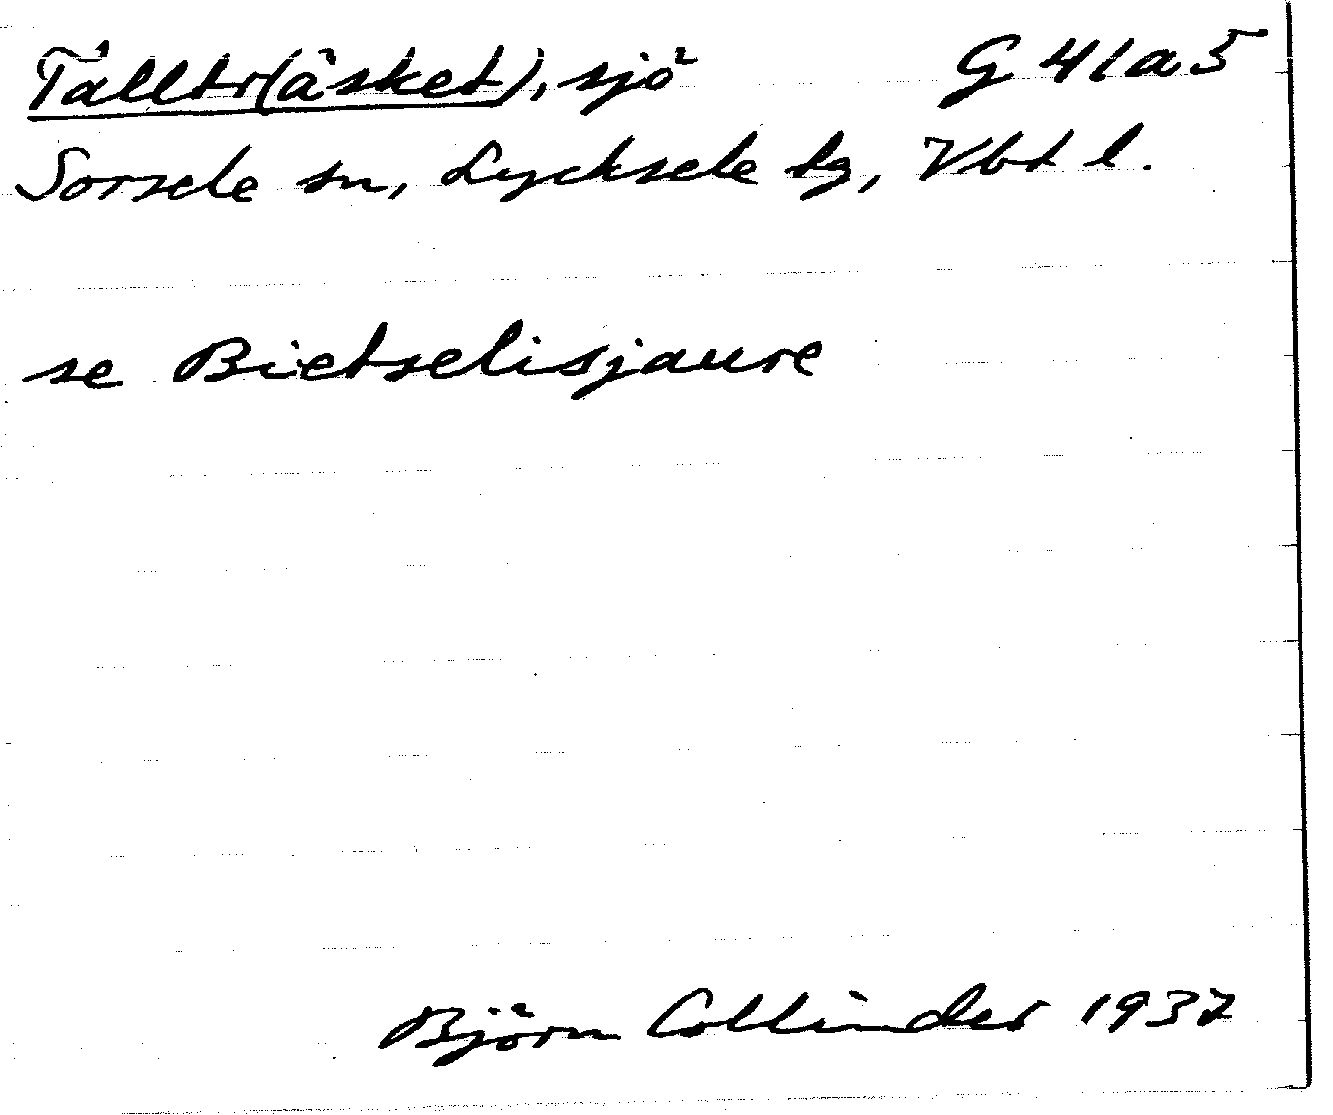 Talltr(äsket), sjö G 41a5
Sorsele sn, Lycksele lg, Vbt l.
se Bietselisjaure
Björn Collinder 1937